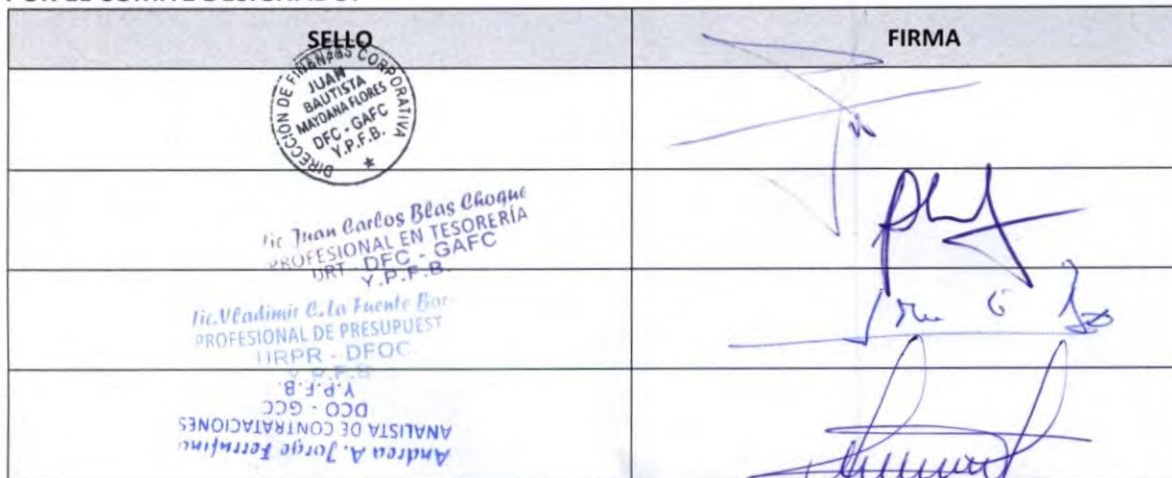 SELLO
FIRMA
DIRECCIÓN DE FINANZAS CORPORATIVA
JUAN
BAUTISTA
MAYDANA FLORES
DFC - GAFC
Y.P.F.B.
Lic Juan Carlos Blas Choque
PROFESIONAL EN TESORERÍA
URT - DFC - GAFC
Y.P.F.B.
Lic. Vladimir C. La Fuente
PROFESIONAL DE PRESUPUEST
URPR - DFOC
Y.P.F.B
Andrea A. Jorge Ferrufino
ANALISTA DE CONTRATACIONES
DCO - GCC
Y.P.F.B.